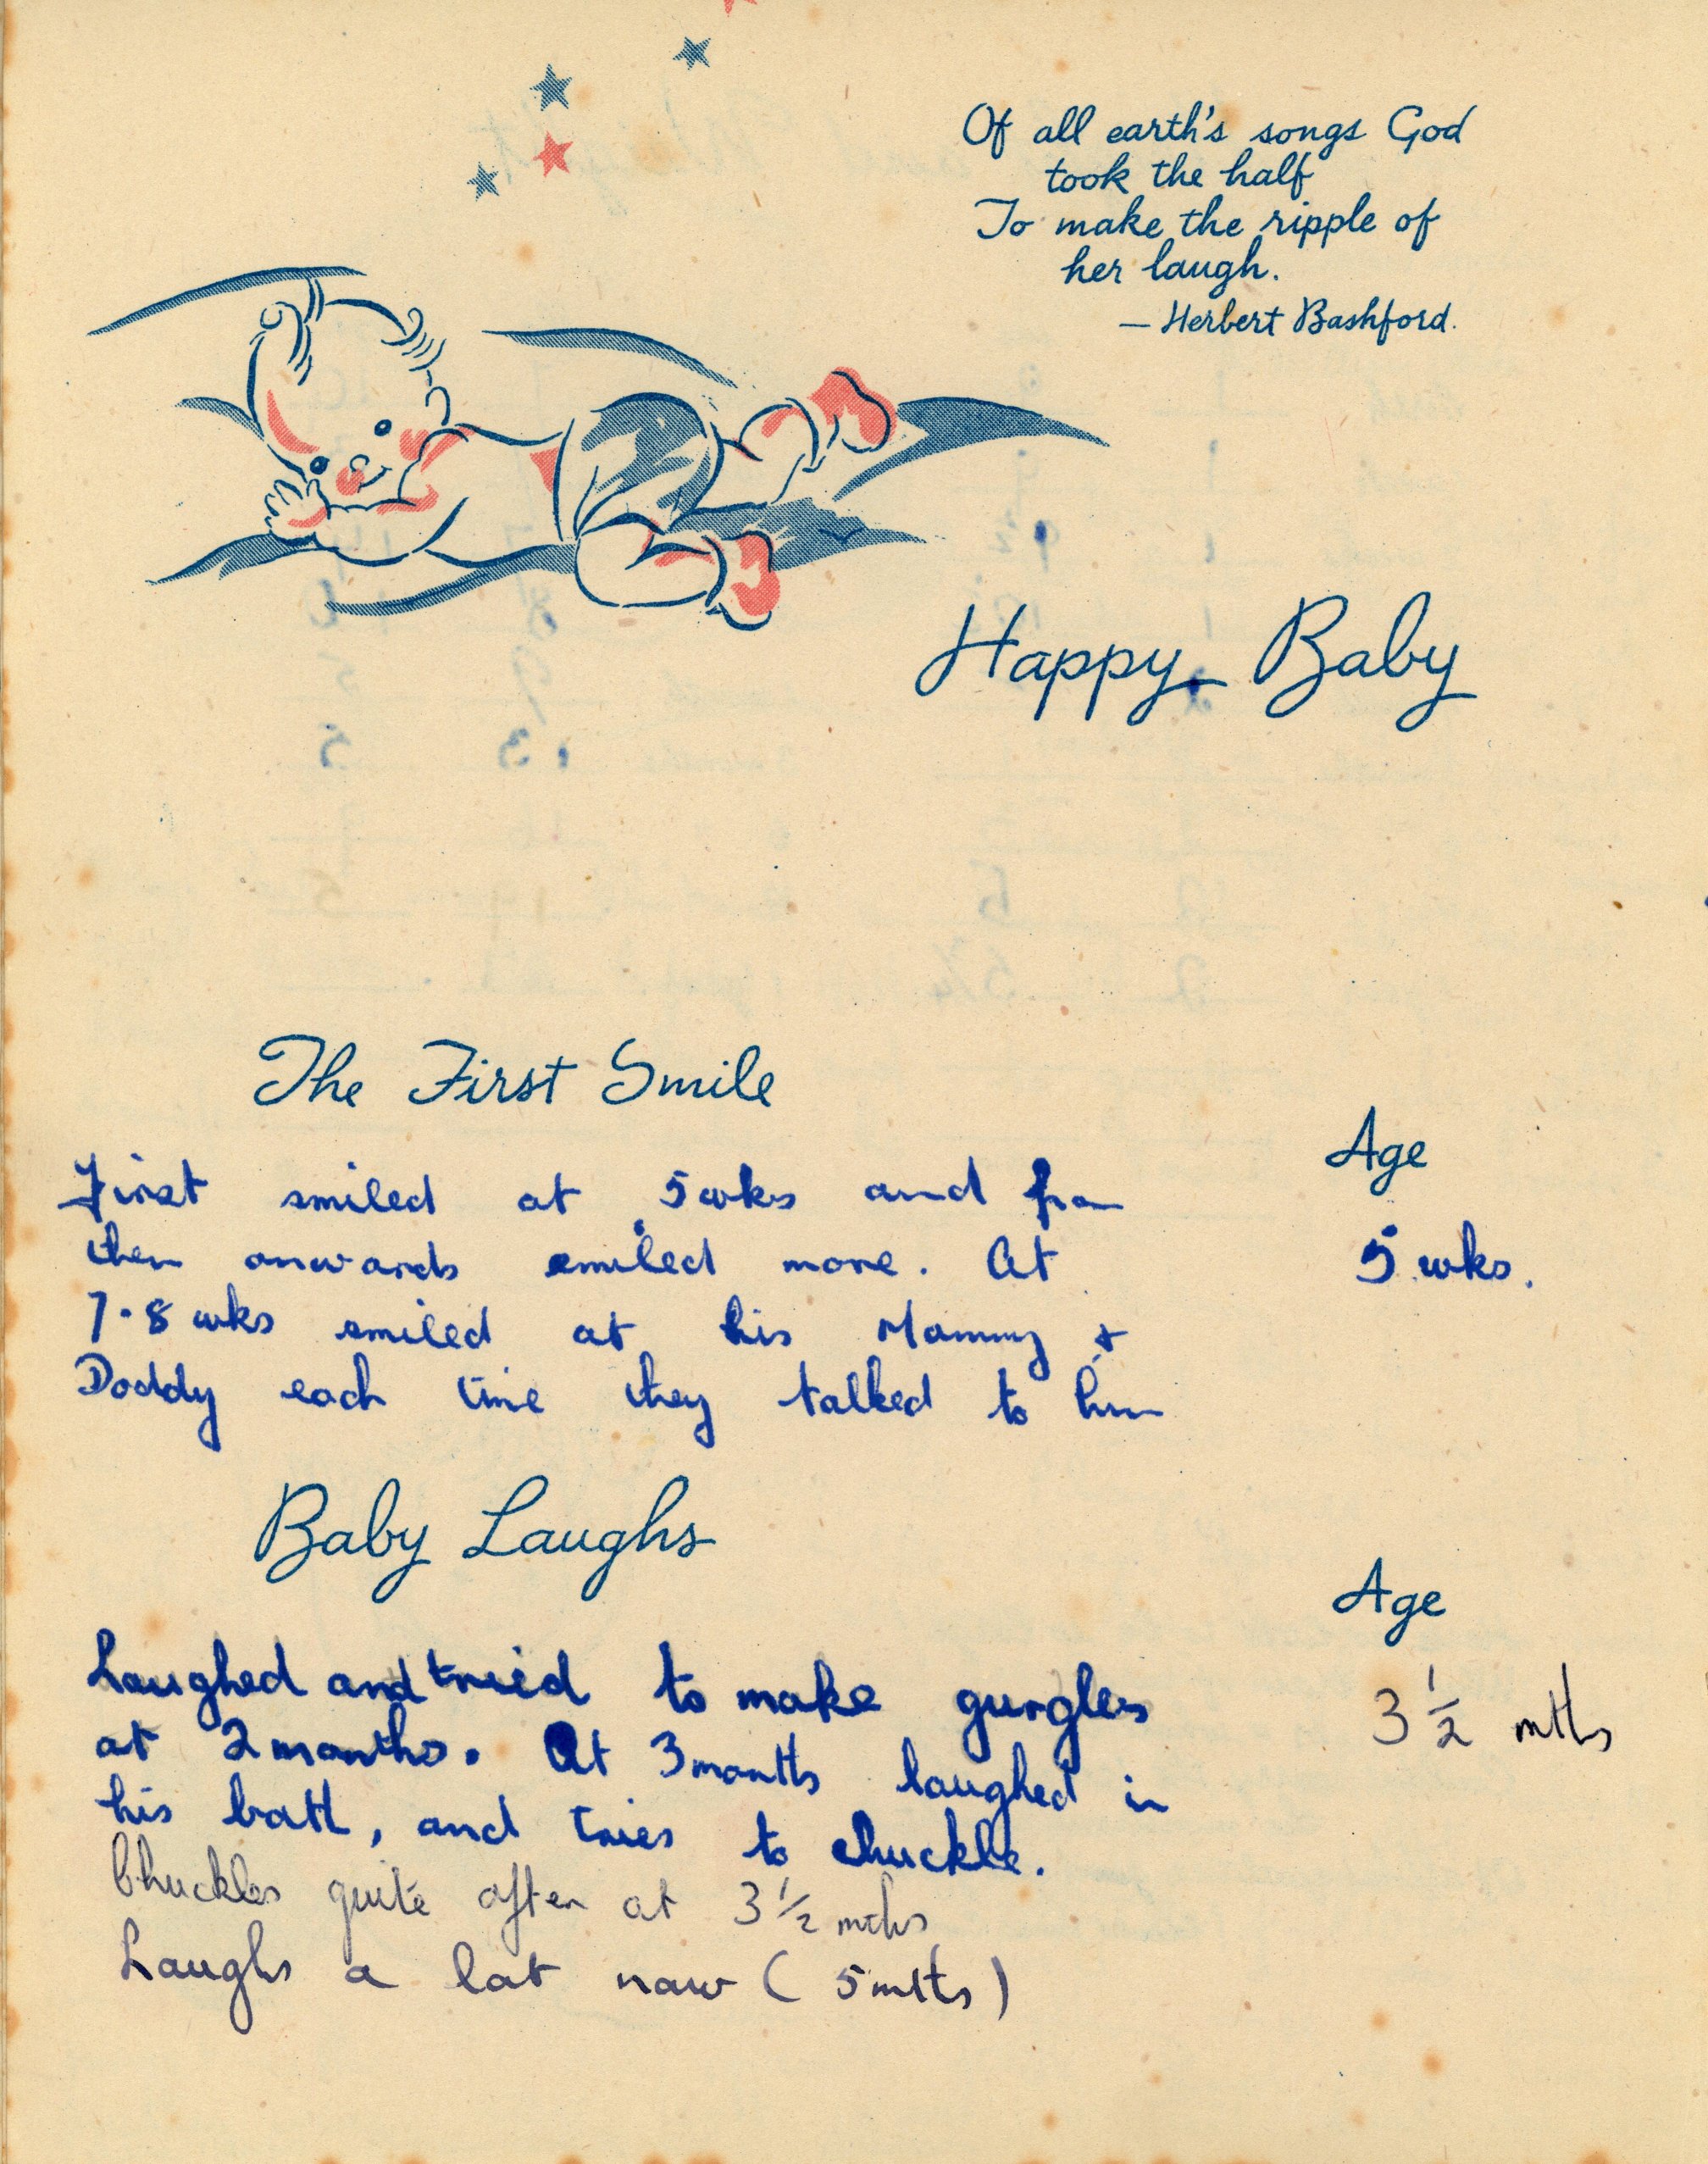 Of all earth's songs God
took the half
To make the ripple of
her laugh.
— Herbert Bashford.
Happy Baby
The First Smile
Age
First smiled at 5 wks and from
then onwards smiled more. At
5 wks.
7-8 wks smiled at his Mammy &
Daddy each time they talked to him
Baby Laughs
Age
Laughed and tried to make gurgles
3 1/2 mths
at 2 months. At 3 months laughed in
his bath, and tries to chuckle.
Chuckles quite often at 3 1/2 mths
Laughs a lot now (5 mths)